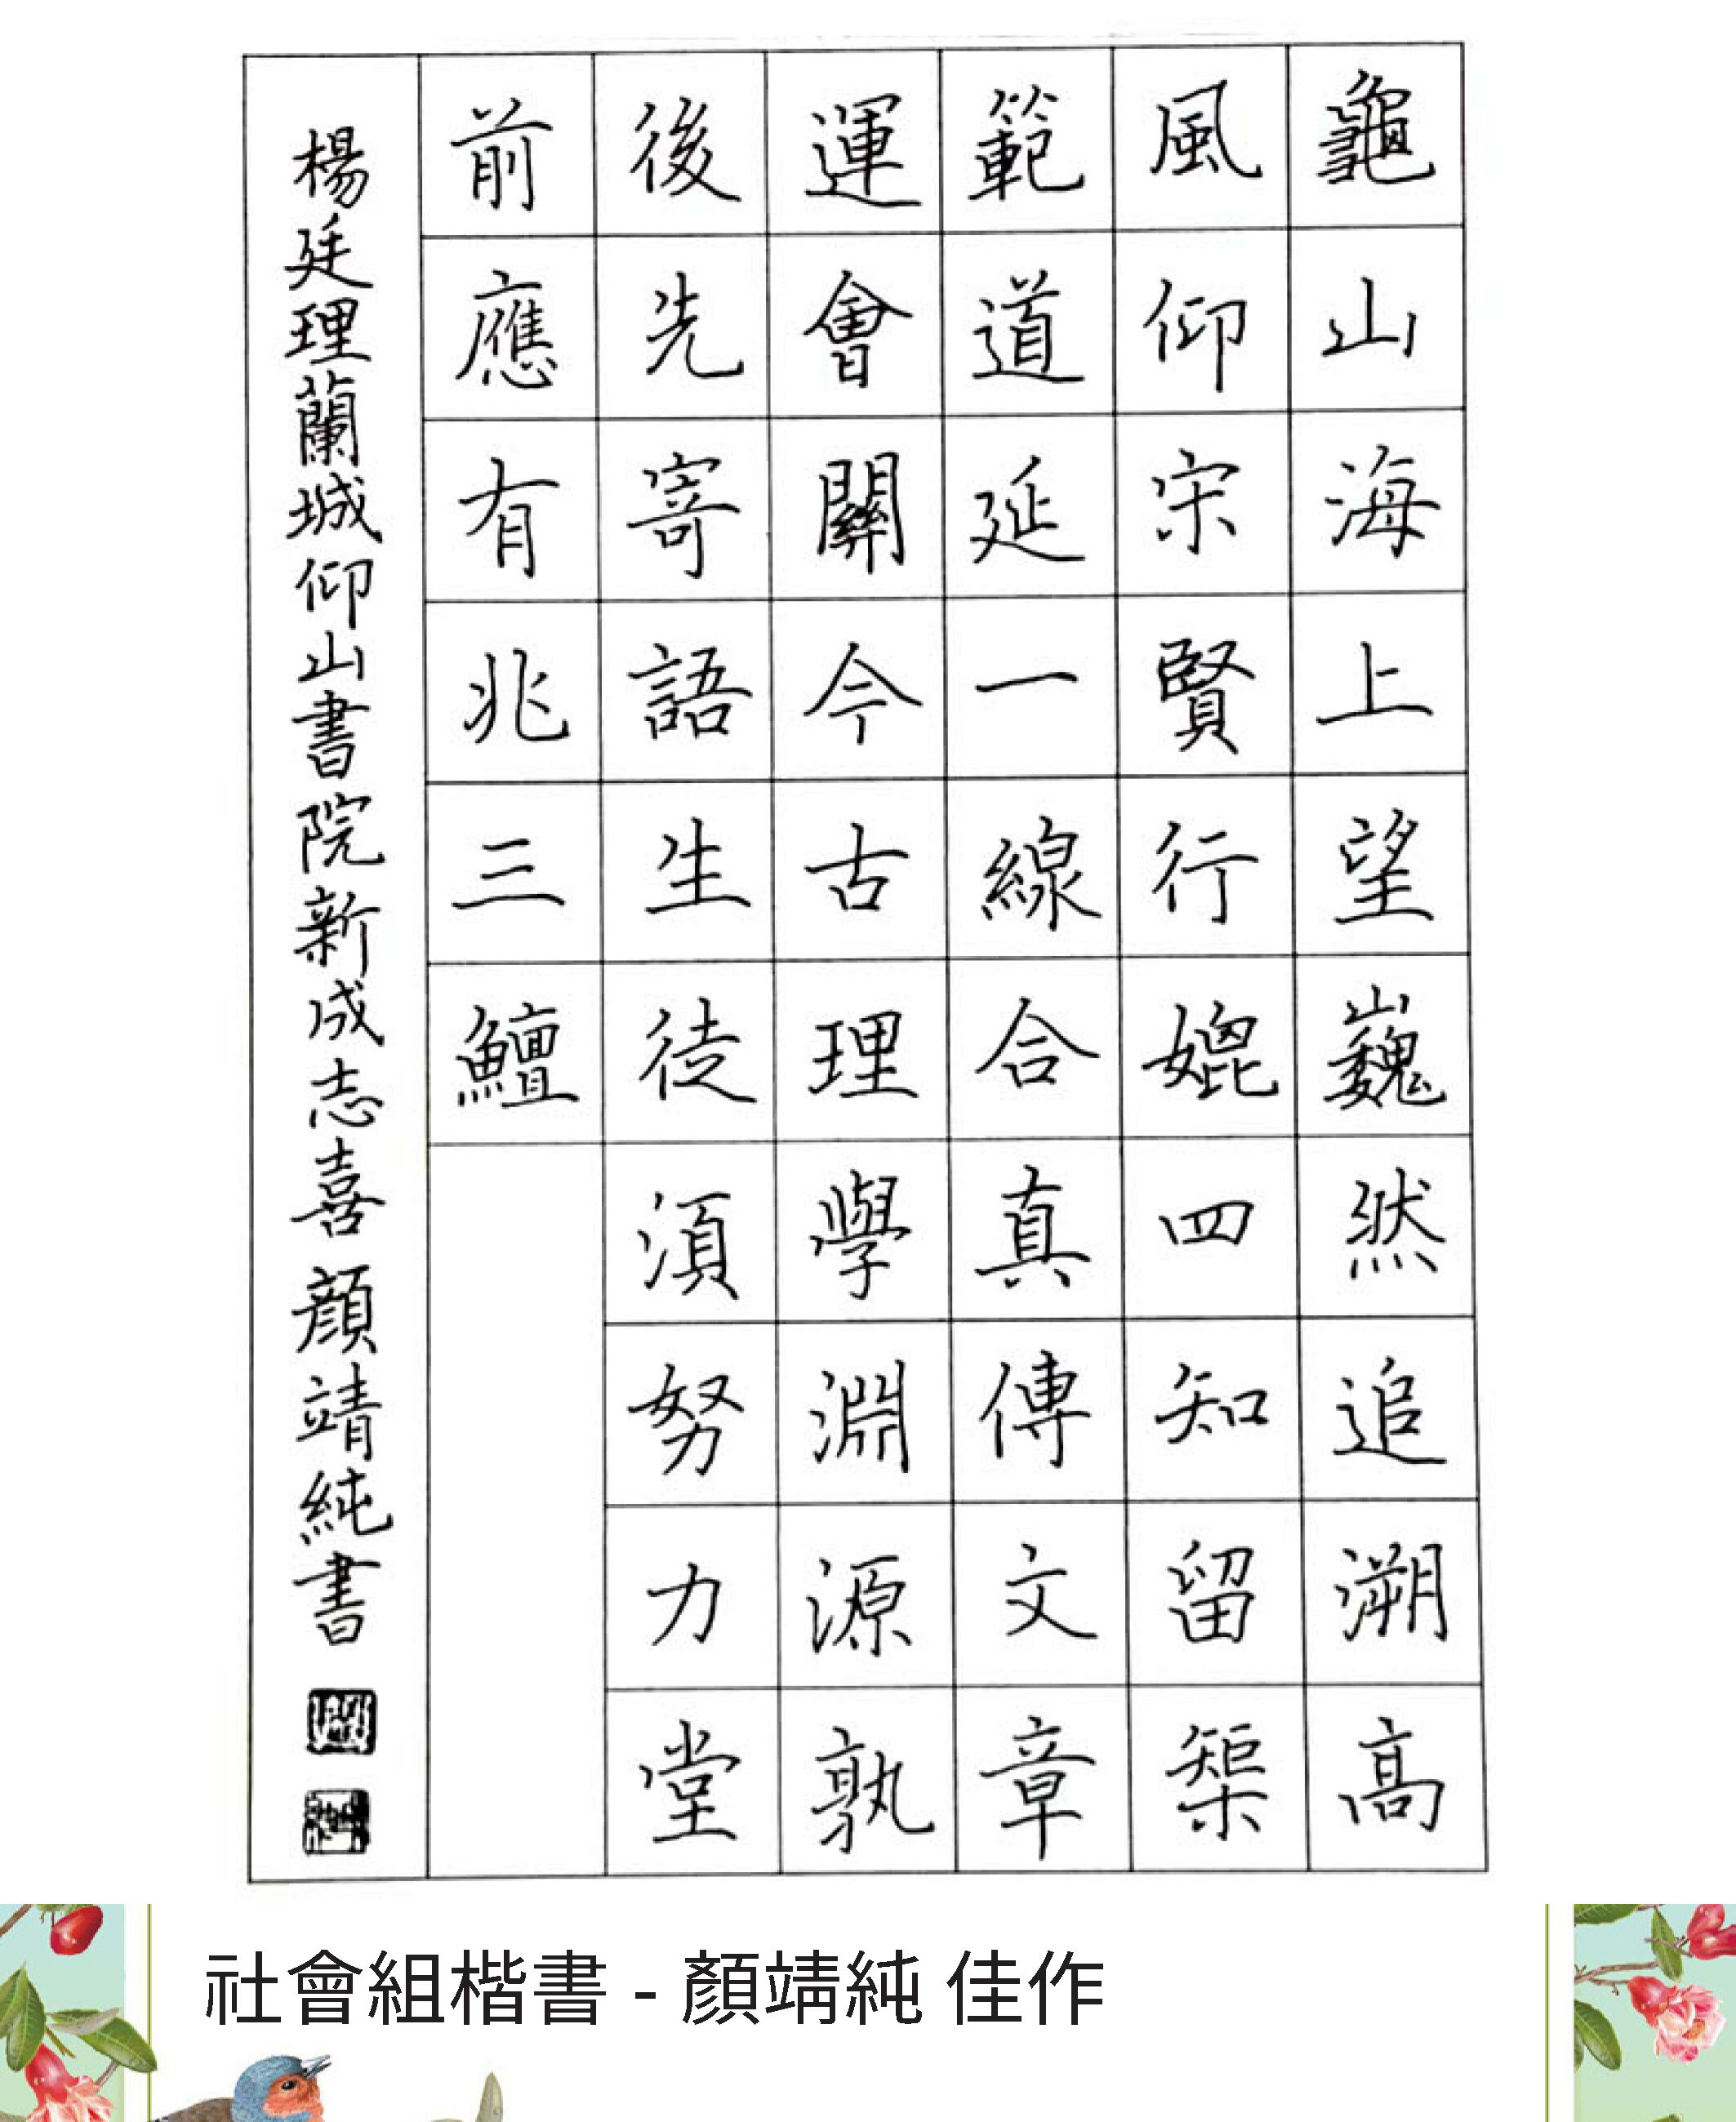 龜山海上望巍然追溯高
風仰宋賢行媲四知留榘
範道延一線合真傳文章
運會關今古理學淵源孰
後先寄語生徒須努力堂
前應有兆三鱣
楊廷理蘭城仰山書院新成志喜 顏靖純書
社會組楷書 - 顏靖純 佳作